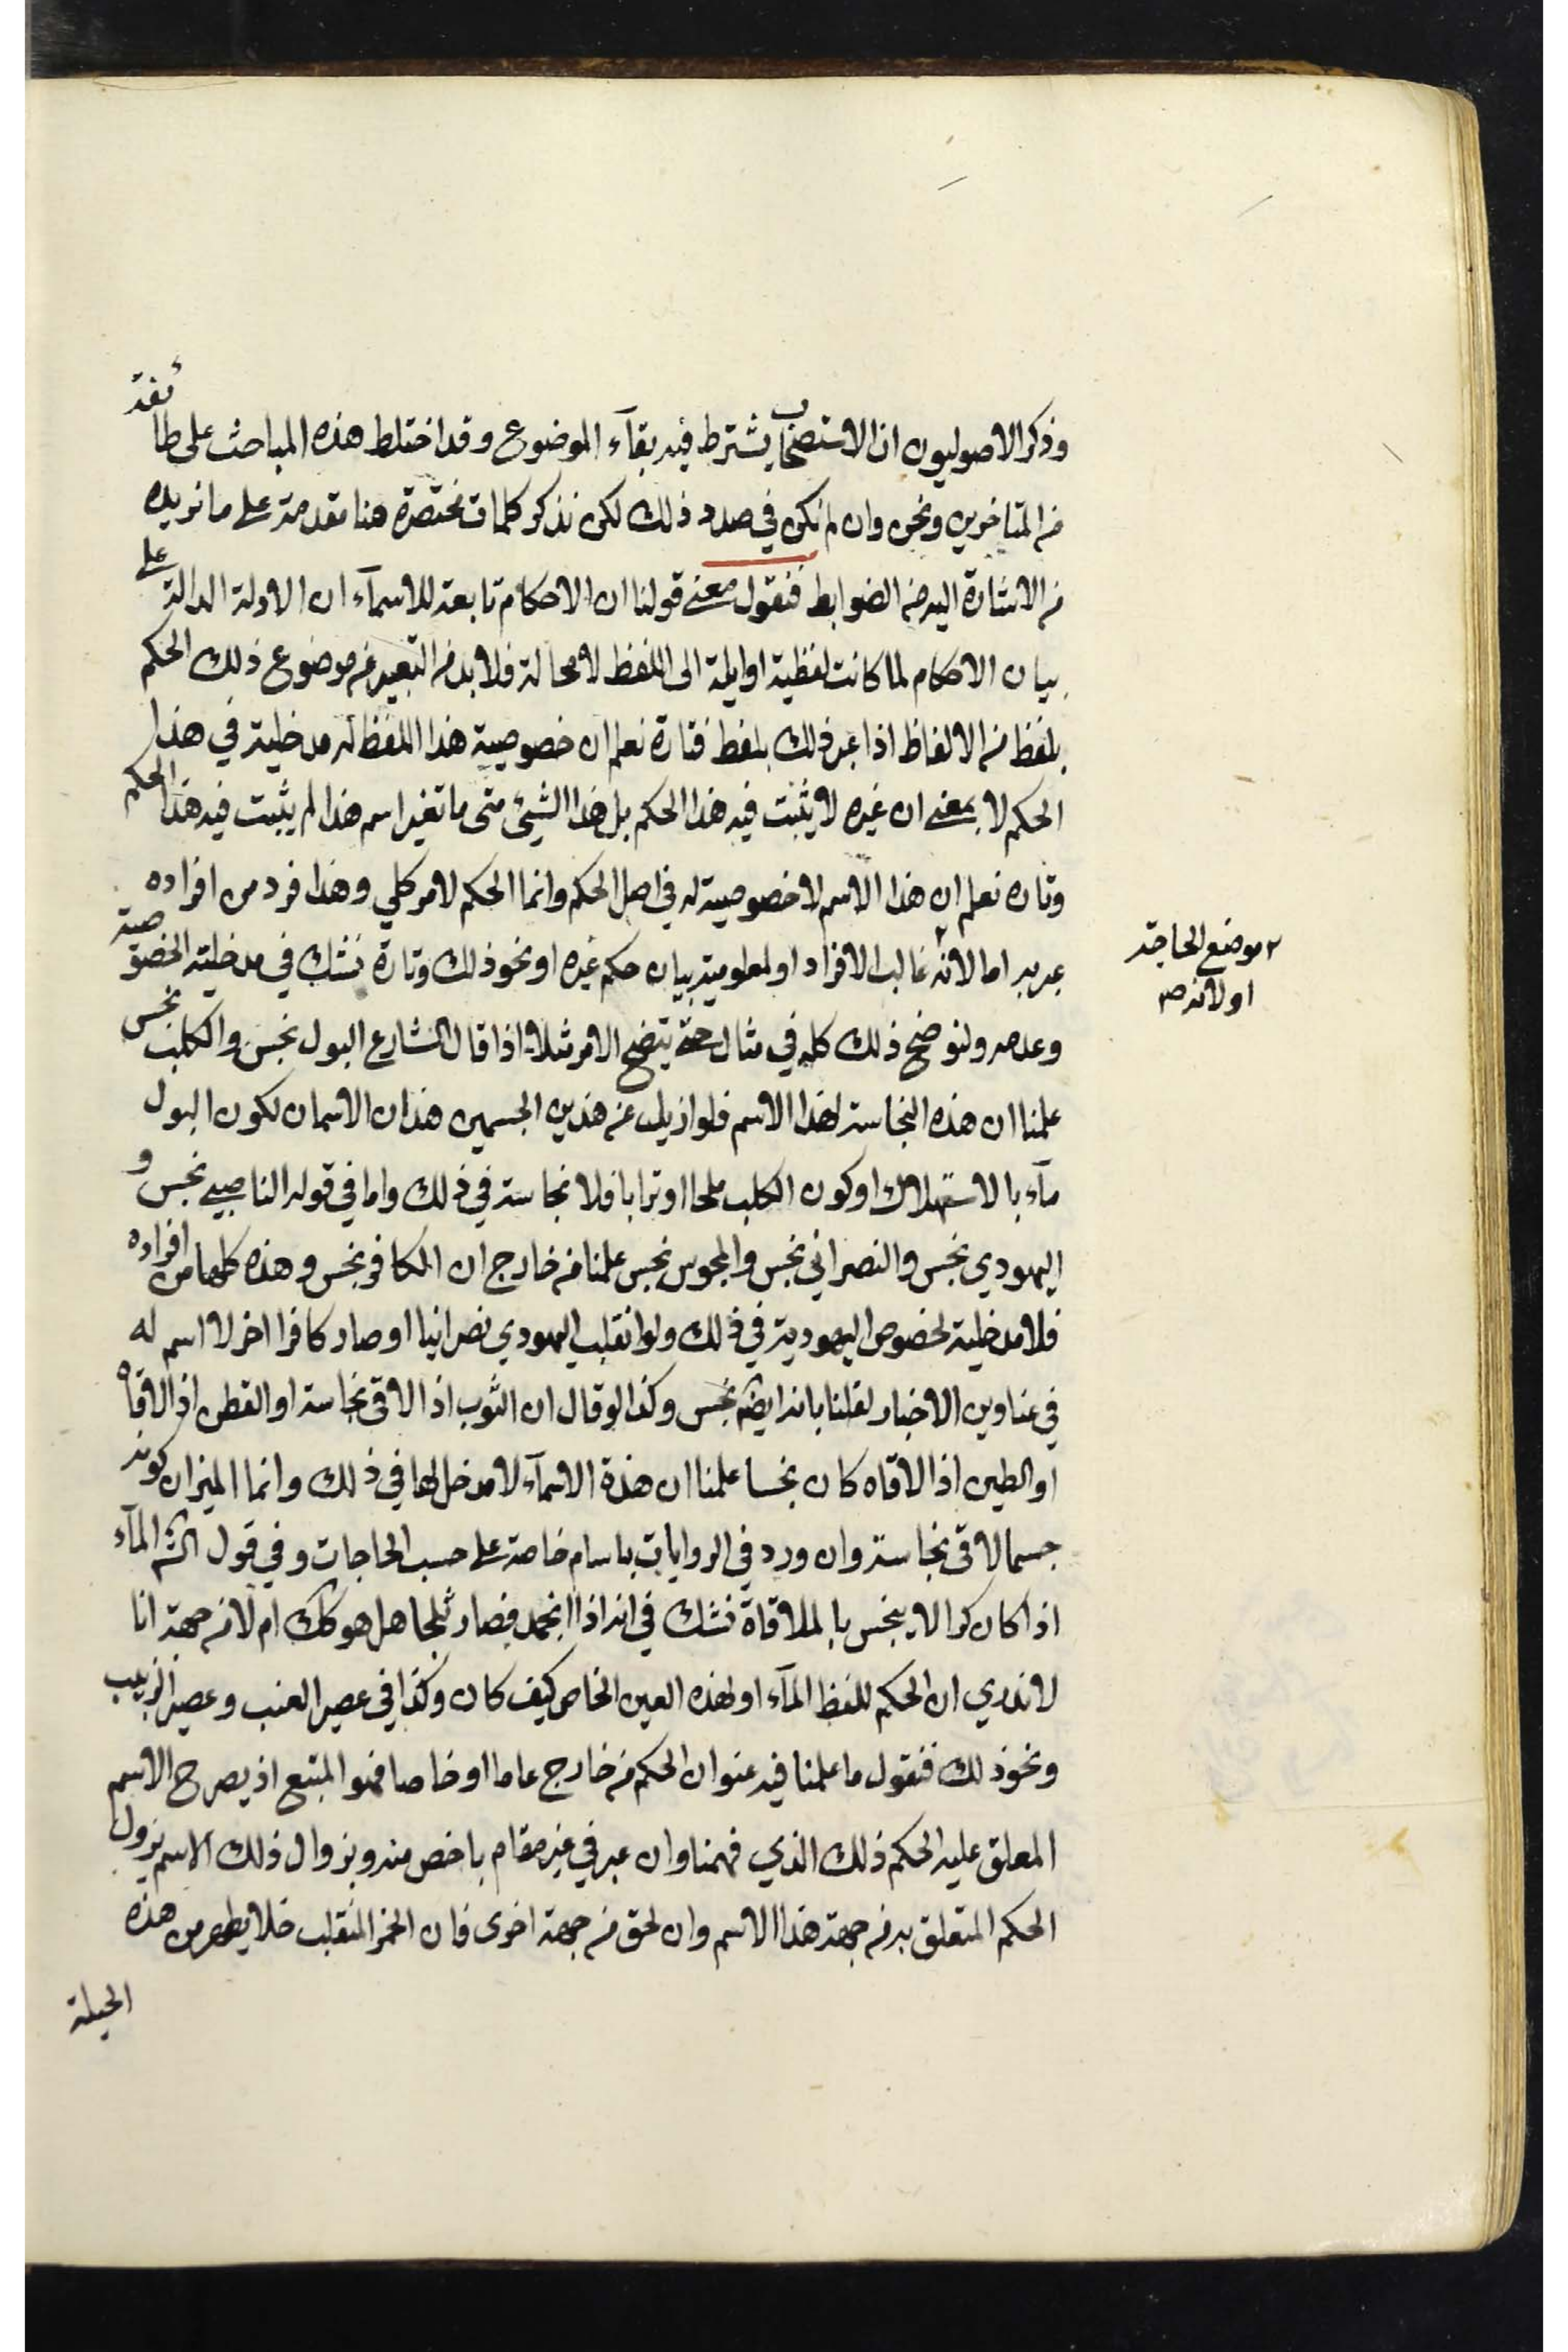 وذكر الاصوليون ان الاستصحاب يشترط فيه بقآء الموضوع وقد اختلط هذه المباحث على طائفة
من المتاخرين ونحن وان لم نكن في صدد ذلك لكن نذكر كلمات مختصرة هنا مقدمة على ما نريده
من الاشارة اليه من الضوابط فنقول معنى قولنا ان الاحكام تابعة للاسمآء ان الادلة الدالة على
بيان الاحكام لما كانت لفظية او ايلة الى اللفظ لا محالة فلا بد من التعبير عن موضوع ذلك الحكم
بلفظ من الالفاظ اذا عبر ذلك بلفظ فتارة نعلم ان خصوصية هذا اللفظ له مدخلية في هذا
الحكم لا بمعنى ان غيره لا يثبت فيه هذا الحكم بل هذا الشيئ متى ما تغير اسم هذا لم يثبت فيه هذا الحكم
وتاره نعلم ان هذا الاسم لا خصوصية له في اصل الحكم وانما الحكم لامر كلي وهذا فرد من افراده
عبر به اما لانه ٢ غالب الافراد او لمعلومية بيان حكم غيره او نحو ذلك وتارة نشك في مدخلية الخصوصية
٢ موضع الحاجة
او لانه صح
وعدمه ولنوضح ذلك كله في مثال حتى يتضح الامر مثلا اذا قال الشارع البول نجس والكلب نجس
علمنا ان هذه النجاسة لهذا الاسم فلو ازيل عن هذين الجسمين هذان الاسمان لكون البول
مآء بالاستهلاك او كون الكلب ملحا او ترابا فلا نجاسة في ذلك واما في قوله الناصبي نجس و
اليهودي نجس والنصراني نجس والمجوس نجس علمنا من خارج ان الكافر نجس وهذه كلها من افراده
فلا مدخلية لخصوص اليهودية في ذلك ولو انقلب اليهودي نصرانيا او صار كافرا اخر لا اسم له
في عناوين الاخبار لقلنا بانه ايضا نجس وكذا لو قال ان الثوب اذا لاقى نجاسة او القطن اذا لاقاه
او الطين اذا لاقاه كان نجسا علمنا ان هذه الاسمآء لا مدخل لها في ذلك وانما الميزان كونه
جسما لاقى نجاسة وان ورد في الروايات باسام خاصة على حسب الحاجات وفي قول الش المآء
اذا كان كرا لا ينجس بالملاقاة نشك في انه اذا انجمد فصار ثلجا هل هو كك ام لا من جهة انا
لا ندري ان الحكم للفظ المآء او لهذه العين الخاص كيف كان وكذا في عصير العنب وعصير الزبيب
ونحو ذلك فنقول ما علمنا فيه عنوان الحكم من خارج عاما او خاصا فهو المتبع اذ يصرح الاسم
المعلق عليه الحكم ذلك الذي فهمنا وان عبر في غير مقام باخص منه وبزوال ذلك الاسم يزول
الحكم المتعلق به من جهة هذا الاسم وان لحق من جهة اخرى فان الخمر المنقلب خلا يطهر من هذه
الحيلة